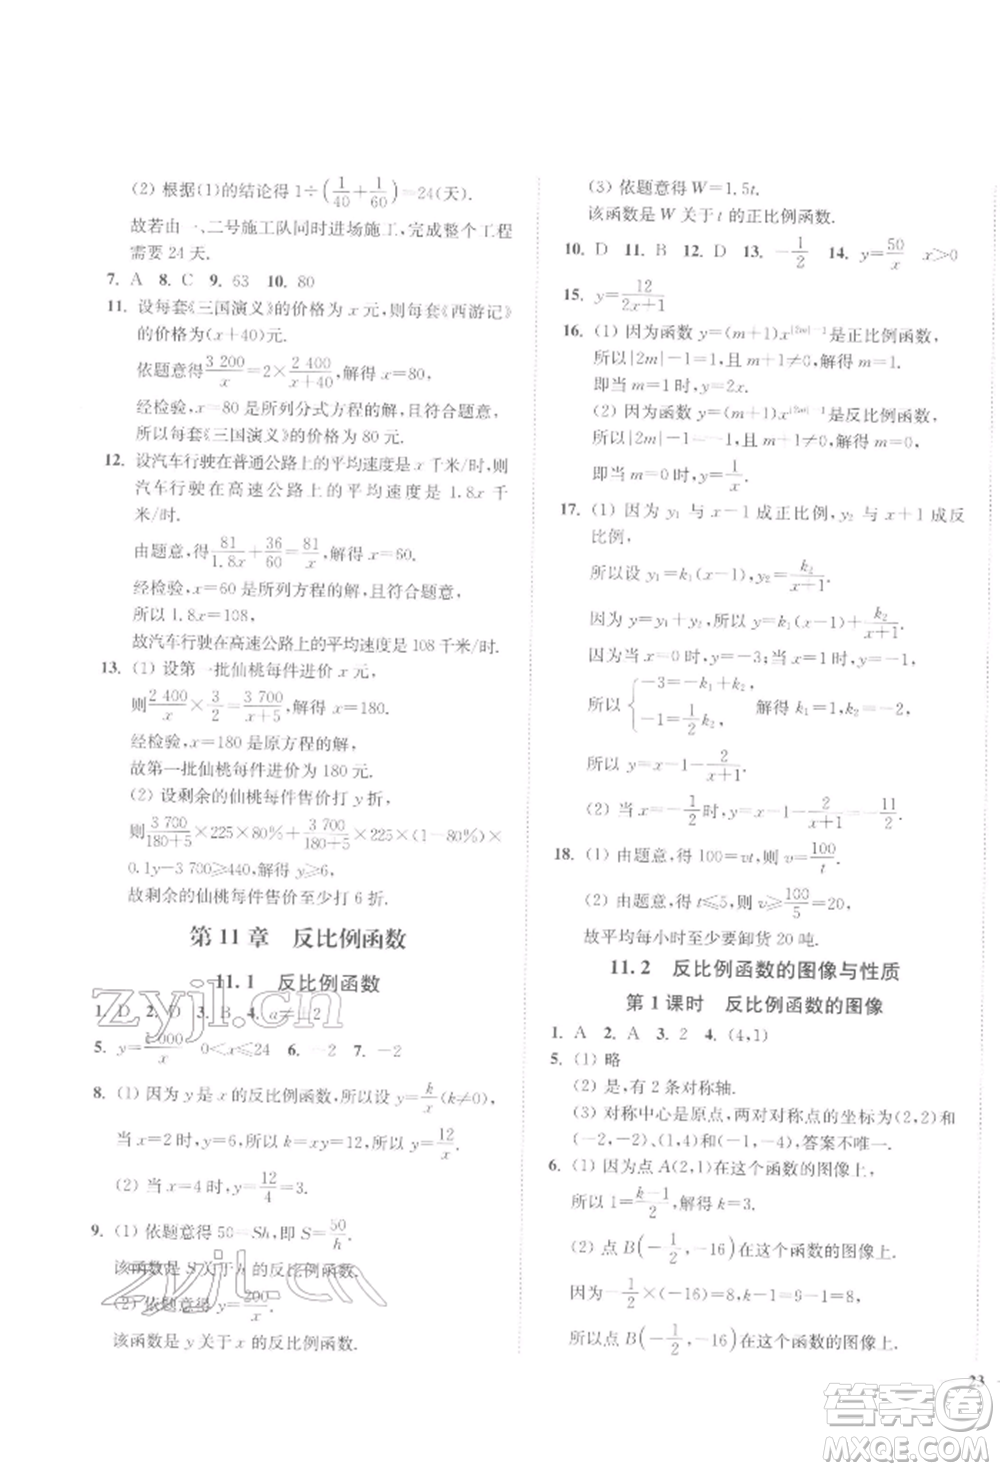 (2) 根据(1)的结论得 1÷(1/40+1/60)=24(天).
故若由一、二号施工队同时进场施工,完成整个工程
需要 24 天.
7. A 8. C 9. 63 10. 80
11. 设每套《三国演义》的价格为 x 元,则每套《西游记》
的价格为(x+40)元.
依题意得 3 200/x=2×2 400/(x+40),解得 x=80,
经检验,x=80 是所列分式方程的解,且符合题意,
所以每套《三国演义》的价格为 80 元.
12. 设汽车行驶在普通公路上的平均速度是 x 千米/时,则
汽车行驶在高速公路上的平均速度是 1.8x 千
米/时.
由题意,得 81/1.8x+36/60=81/x,解得 x=60.
经检验,x=60 是所列方程的解,且符合题意,
所以 1.8x=108,
故汽车行驶在高速公路上的平均速度是 108 千米/时.
13. (1) 设第一批仙桃每件进价 x 元,
则 2 400/x×3/2=3 700/(x+5),解得 x=180.
经检验,x=180 是原方程的解,
故第一批仙桃每件进价为 180 元.
(2) 设剩余的仙桃每件售价打 y 折,
则 3 700/(180+5)×225×80%+3 700/(180+5)×225×(1-80%)×
0.1y-3 700≥440,解得 y≥6,
故剩余的仙桃每件售价至少打 6 折.
第 11 章 反比例函数
11.1 反比例函数
1. D 2. D 3. B 4. a≠ 2
5. y= 000/x 0<x≤24 6. -2 7. -2
8. (1) 因为 y 是 x 的反比例函数,所以设 y=k/x(k≠0),
当 x=2 时,y=6,所以 k=xy=12,所以 y=12/x.
(2) 当 x=4 时,y=12/4=3.
9. (1) 依题意得 50=Sh,即 S=50/h.
该函数是 S 关于 h 的反比例函数.
(2) 依题意得 y=200/x.
该函数是 y 关于 x 的反比例函数.
(3) 依题意得 W=1.5t.
该函数是 W 关于 t 的正比例函数.
10. D 11. B 12. D 13. -1/2 14. y=50/x x>0
15. y=12/(2x+1)
16. (1) 因为函数 y=(m+1)x^(|2m|-1)是正比例函数,
所以|2m|-1=1,且 m+1≠0,解得 m=1.
即当 m=1 时,y=2x.
(2) 因为函数 y=(m+1)x^(|2m|-1)是反比例函数,
所以|2m|-1=-1,且 m+1≠0,解得 m=0,
即当 m=0 时,y=1/x.
17. (1) 因为 y₁ 与 x-1 成正比例,y₂ 与 x+1 成反
比例,
所以设 y₁=k₁(x-1),y₂=k₂/(x+1),
所以 y=y₁+y₂=k₁(x-1)+k₂/(x+1).
因为当 x=0 时,y=-3;当 x=1 时,y=-1,
所以 {-3=-k₁+k₂, -1=1/2k₂, 解得 k₁=1,k₂=-2,
所以 y=x-1-2/(x+1).
(2) 当 x=-1/2 时,y=x-1-2/(x+1)=-11/2.
18. (1) 由题意,得 100=vt,则 v=100/t.
(2) 由题意,得 t≤5,则 v≥100/5=20,
故平均每小时至少要卸货 20 吨.
11.2 反比例函数的图像与性质
第 1 课时 反比例函数的图像
1. A 2. A 3. 2 4. (4,1)
5. (1) 略
(2) 是,有 2 条对称轴.
(3) 对称中心是原点,两对对称点的坐标为(2,2)和
(-2,-2)、(1,4)和(-1,-4),答案不唯一.
6. (1) 因为点 A(2,1)在这个函数的图像上,
所以 1=(k-1)/2,解得 k=3.
(2) 点 B(-1/2,-16)在这个函数的图像上.
因为 -1/2×(-16)=8,k-1=9-1=8,
所以点 B(-1/2,-16)在这个函数的图像上.
23
zyjl.cn
zyjl.cn
答案圈
MXQE.COM